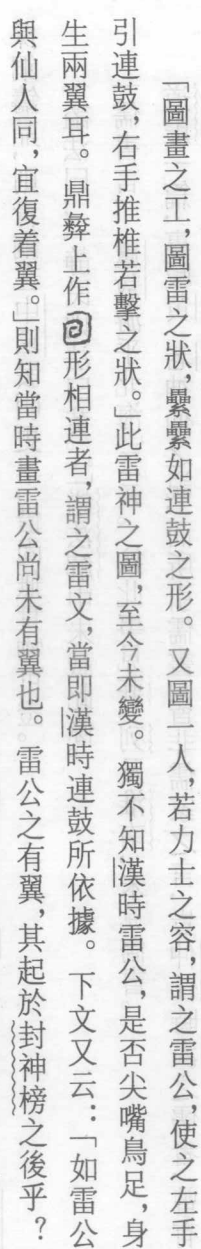 「圖畫之工，圖雷之狀，纍纍如連鼓之形。又圖一人，若力士之容，謂之雷公，使之左手
引連鼓，右手推椎若擊之狀。」此雷神之圖，至今未變。獨不知漢時雷公，是否尖嘴鳥足，身
生兩翼耳。鼎彝上作形相連者，謂之雷文，當即漢時連鼓所依據。下文又云：「如雷公
與仙人同，宜復着翼。」則知當時畫雷公尚未有翼也。雷公之有翼，其起於封神榜之後乎？